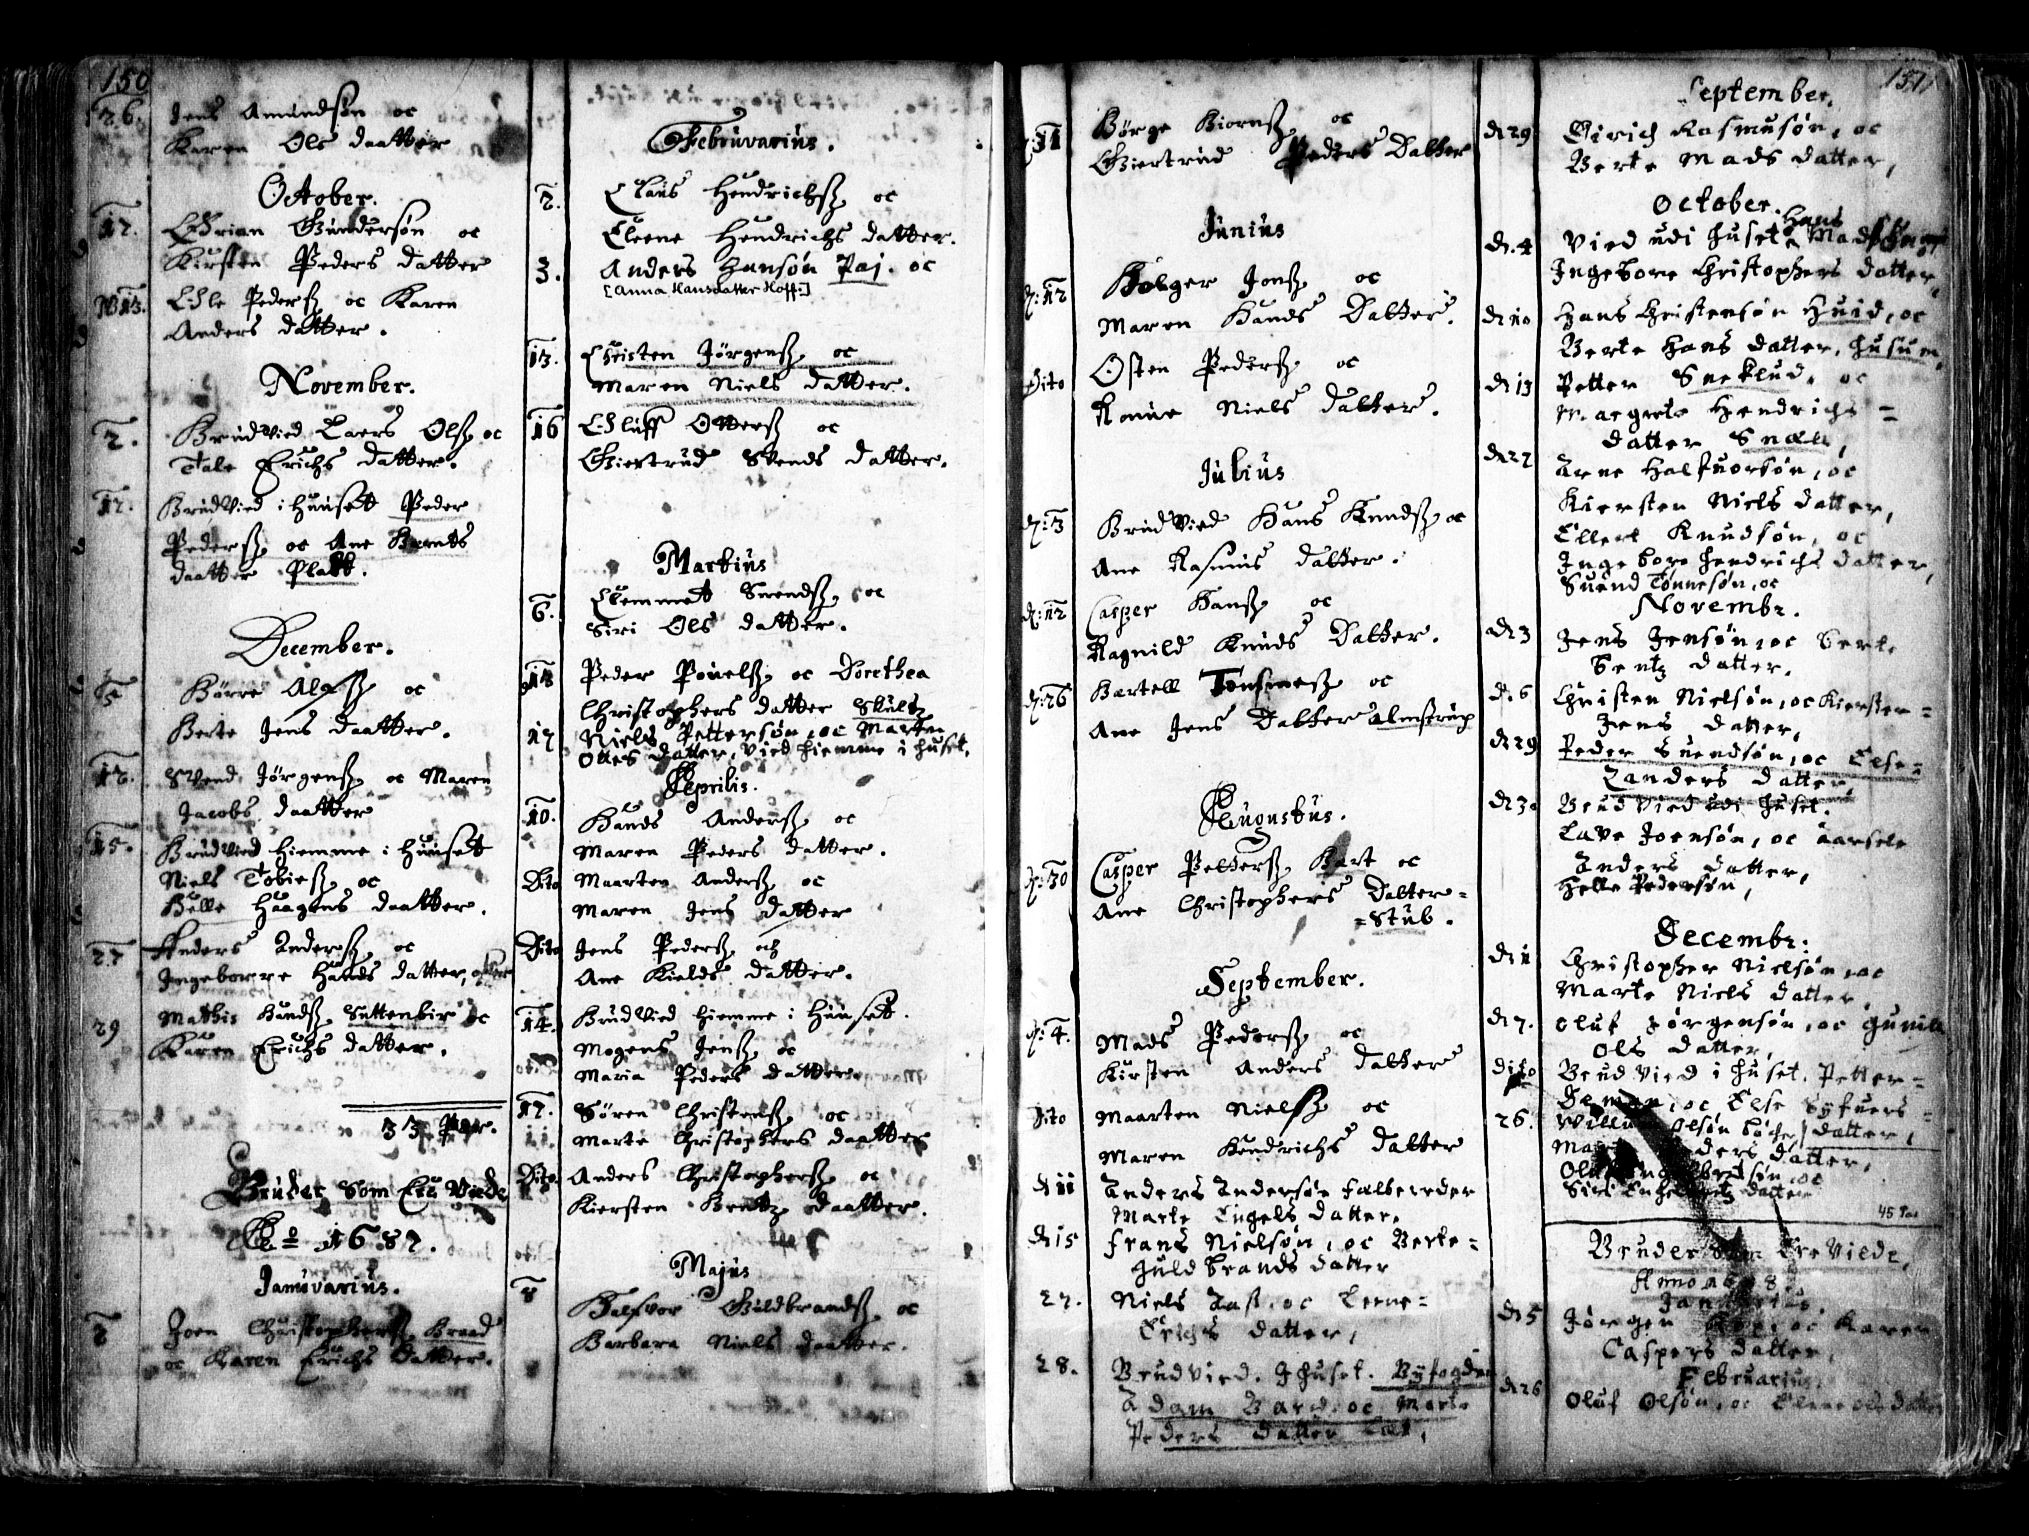 150
26. Jens Amundsøn oc
Karen Ols daatter
October.
12. Gündersøn oc
Kirsten Peders datter
13. Ole Peders. oc Karen
Anders datter.
November.
2. Brudvied Laers Ols. oc
Tale Erichs datter.
12. Brudvied i Huuset Peder
Peders. oc Ane Bernts
daatter Platt.
December.
5 Børre oc
Berte Jens daatter.
12. Svend Jørgens. oc Maren
Jacobs daatter
15. Brudvied hiemme i Huuset
Niels Tobies. oc
Helle Haagens daatter.
27 Anders Anders. oc
Ingeborre Hands datter,
29 Mathis Hands. Suttenbir oc
Karen Erichs datter.
33 Par.
Bruder Som Ere Viede
Ao 1687.
Januvarius.
2 Joen Christophers. Braad
oc Karen Erichs datter.
Februvarius.
2. Claus Hendrichs. oc
Eleene Hendrichs datter.
3. Anders Hansøn Paj. oc
[Anna Hansdatter Hoff:]
13. Christen Jørgens. oc
Maren Niels datter.
16 Oluff Otters. oc
Giertrud Svends datter.
Martius
6. Clemmet Svends. oc
Siri Ols datter.
13 Peder Povels. oc Dorethea
Christophers datter Skultz
17 Niels Pettersøn, oc Marten
Ottes datter, vied hiemme i huset.
Aprilis.
10. Hands Anders. oc
Maren Peders datter.
Dito Maarten Anders. oc
Maren Jens datter
Dito Jens Peders. och
Ane Kields datter.
14. Brudvied hiemme i Huuset.
Mogens Jens. oc
Maria Peders datter.
17. Søren Christens. oc
Marte Christophers daatter
Dito Anders Christophers. oc
Kiersten Bretz daatter.
Majus
8 Halfvor Guldbrands. oc
Barbara Niels daatter.
151
d: 11 Børge Biørns. oc
Giertrud Peders Datter
Junius
d: 12 Holger Jons. oc
Maren Hands Datter.
Dito Osten Peders. oc
Rönne Niels datter.
Julius
d: 3 Brudvied Hans Knuds. oc
Ane Rasmus datter.
d: 12 Casper Hans. oc
Ragnild Knuds Datter.
d: 26 Bartell oc
Ane Jens Datter Almstrup
Augustus.
d: 30 Casper Petters. Bart oc
Ane Christophers Datter=
=Stub.
September.
d: 4. Mads Peders. oc
Kirsten Anders Datter
Dito Maarten Niels. oc
Maren Hendrichs Datter
d 11 Anders Andersøn Falbeereder
Marte Engels datter,
d 15 Frans Nielsøn, oc Berte=
Huldbrands datter
27. Niels Last, oc Leene=
Erichs datter,
28. Brudvied. I huset. Byfogden
Adam Bard, oc Marte
Peders datter Lat,
September.
d 29 Eirich Rasmusøn, oc
Berte Mads datter,
October.
Hans
d. 4 Vied udi huset
Ingebore Christophers datter,
d 10 Hans Christensøn Huid, oc
Berte Hans datter, Husum,
d 13 Petter Sneklud, oc
Margrete Hendrichs=
datter Snell,
d 27 Arne Halfuorsøn, oc
Kiersten Niels datter,
Ellert Knudsøn, oc
Ingebore Hendrichs datter,
Suend Tønnesøn, oc
Novembr.
d 3 Jens Jensøn, oc Berte
Bentz datter.
d. 6 Christen Nielsøn, oc Kiersten=
Jens datter,
d 29 Peder Suendsøn, oc Else=
Zanders datter,
d 30 Brudvied udi huset.
Lave Joensøn, oc Aarsele
Anders datter,
Helle Pedersøn,
Decembr.
d 11 Christopher Nielsøn, oc
Marte Niels datter,
d 7. Oluf Jørgensøn, oc Gunild
Ols datter,
dito Brudvied i huset. Petter=
oc Else Syfuers=
26. Olsøn datter,
datter,
oc
datter
45 Par
Bruder Som Ere Viede,
Anno
d 5 Jørgen oc Karen
Caspers datter,
Februarius.
d 26 Oluf Olsøn, oc datter